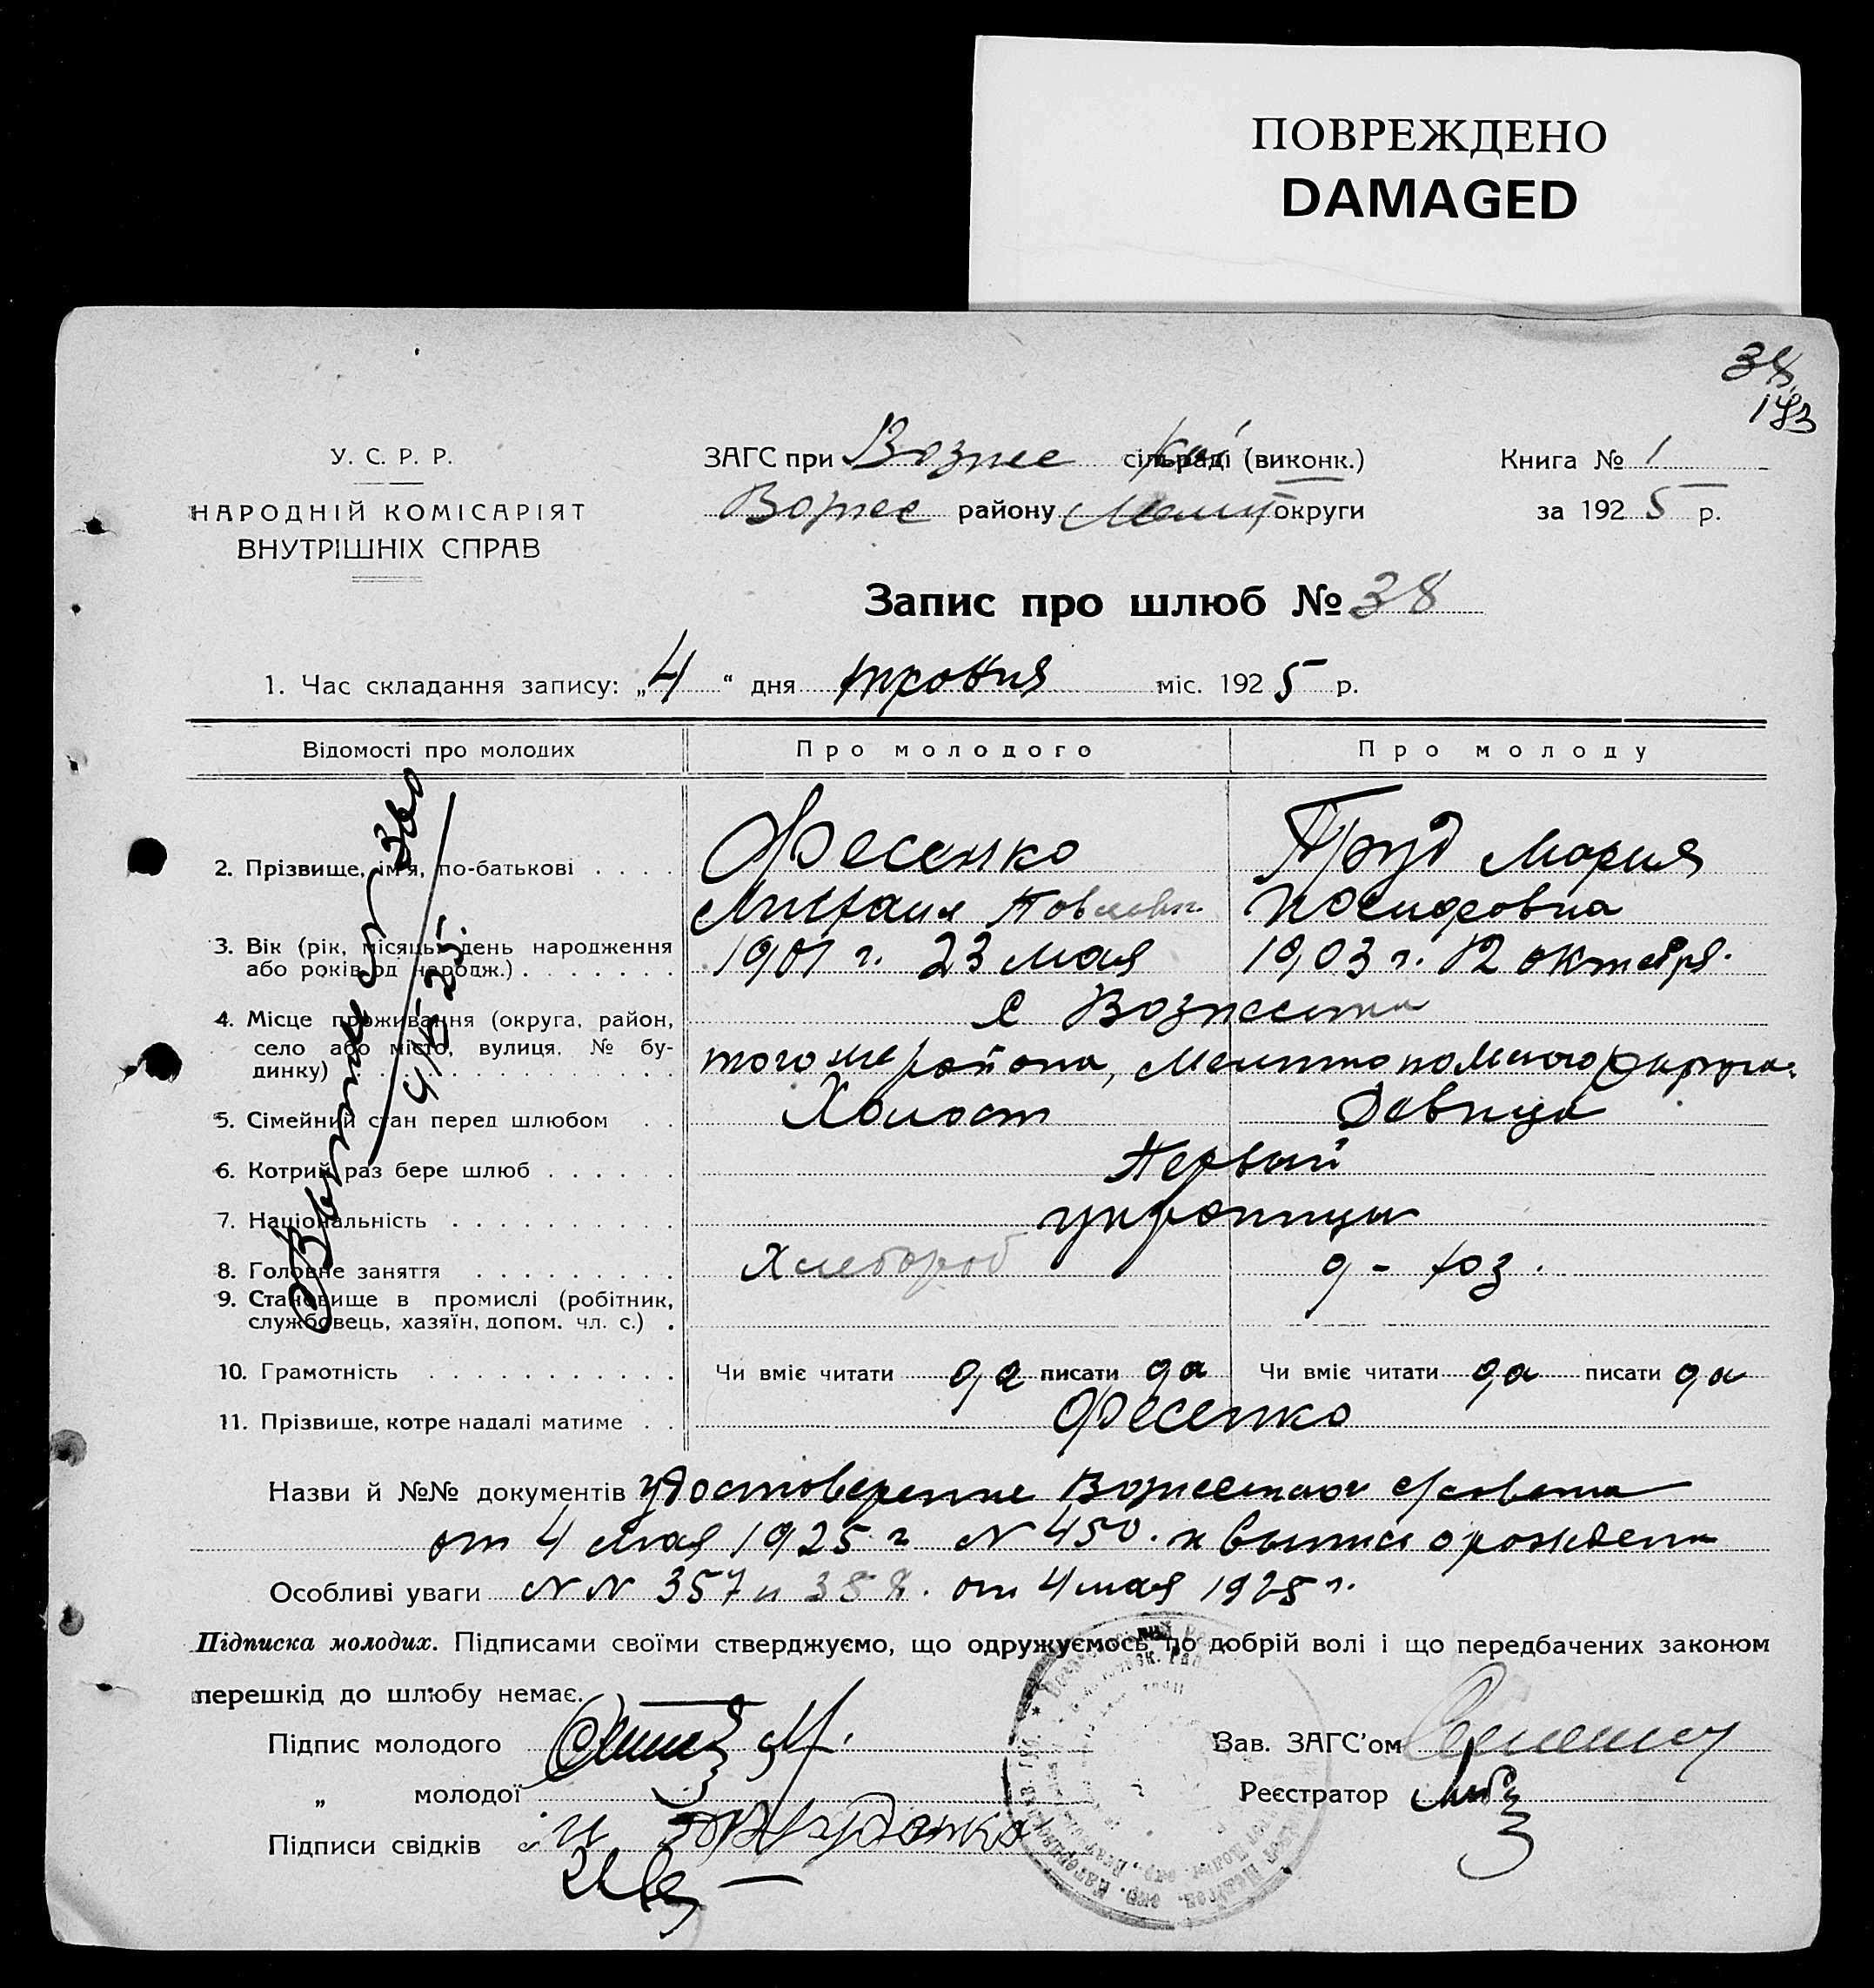 ПОВРЕЖДЕНО
DAMAGED
38
183
У. С. Р. Р.
НАРОДНІЙ КОМІСАРІЯТ
ВНУТРІШНІХ СПРАВ
ЗАГС при Вознес сільраді (виконк.)
Вознес району Мелит округи
Книга № 1
за 1925 р.
Запис про шлюб № 38
1. Час складання запису: „4" дня травня міс. 1925 р.
Відомості про молодих Про молодого Про молоду
2. Прізвище, ім'я, по-батькові Фесенко Труд Мария
Михаил Павлович
3. Вік (рік, місяць, день народження або років од народж.) 1901 г. 23 мая 1903 г. 12 октября.
4. Місце проживання (округа, район, село або місто, вулиця, № будинку) с Вознесенка
того же района, Мелитопольского округа.
5. Сімейний стан перед шлюбом Холост Девица
6. Котрий раз бере шлюб Первый
7. Національність украинцы
8. Головне заняття Хлебороб д - хоз.
9. Становище в промислі (робітник, службовець, хазяїн, допом. чл. с.)
10. Грамотність Чи вміє читати да писати да Чи вміє читати да писати да
11. Прізвище, котре надалі матиме Фесенко
Назви й №№ документів удостоверение Вознесенского с/совета
от 4 мая 1925 г N 450. и выписи о рождени
Особливі уваги N N 357 и 358. от 4 мая 1925 г.
Підписка молодих. Підписами своїми стверджуємо, що одружуємось по добрій волі і що передбачених законом
перешкід до шлюбу немає.
Підпис молодого
„ молодої
Підписи свідків
Зав. ЗАГС'ом
Реєстратор